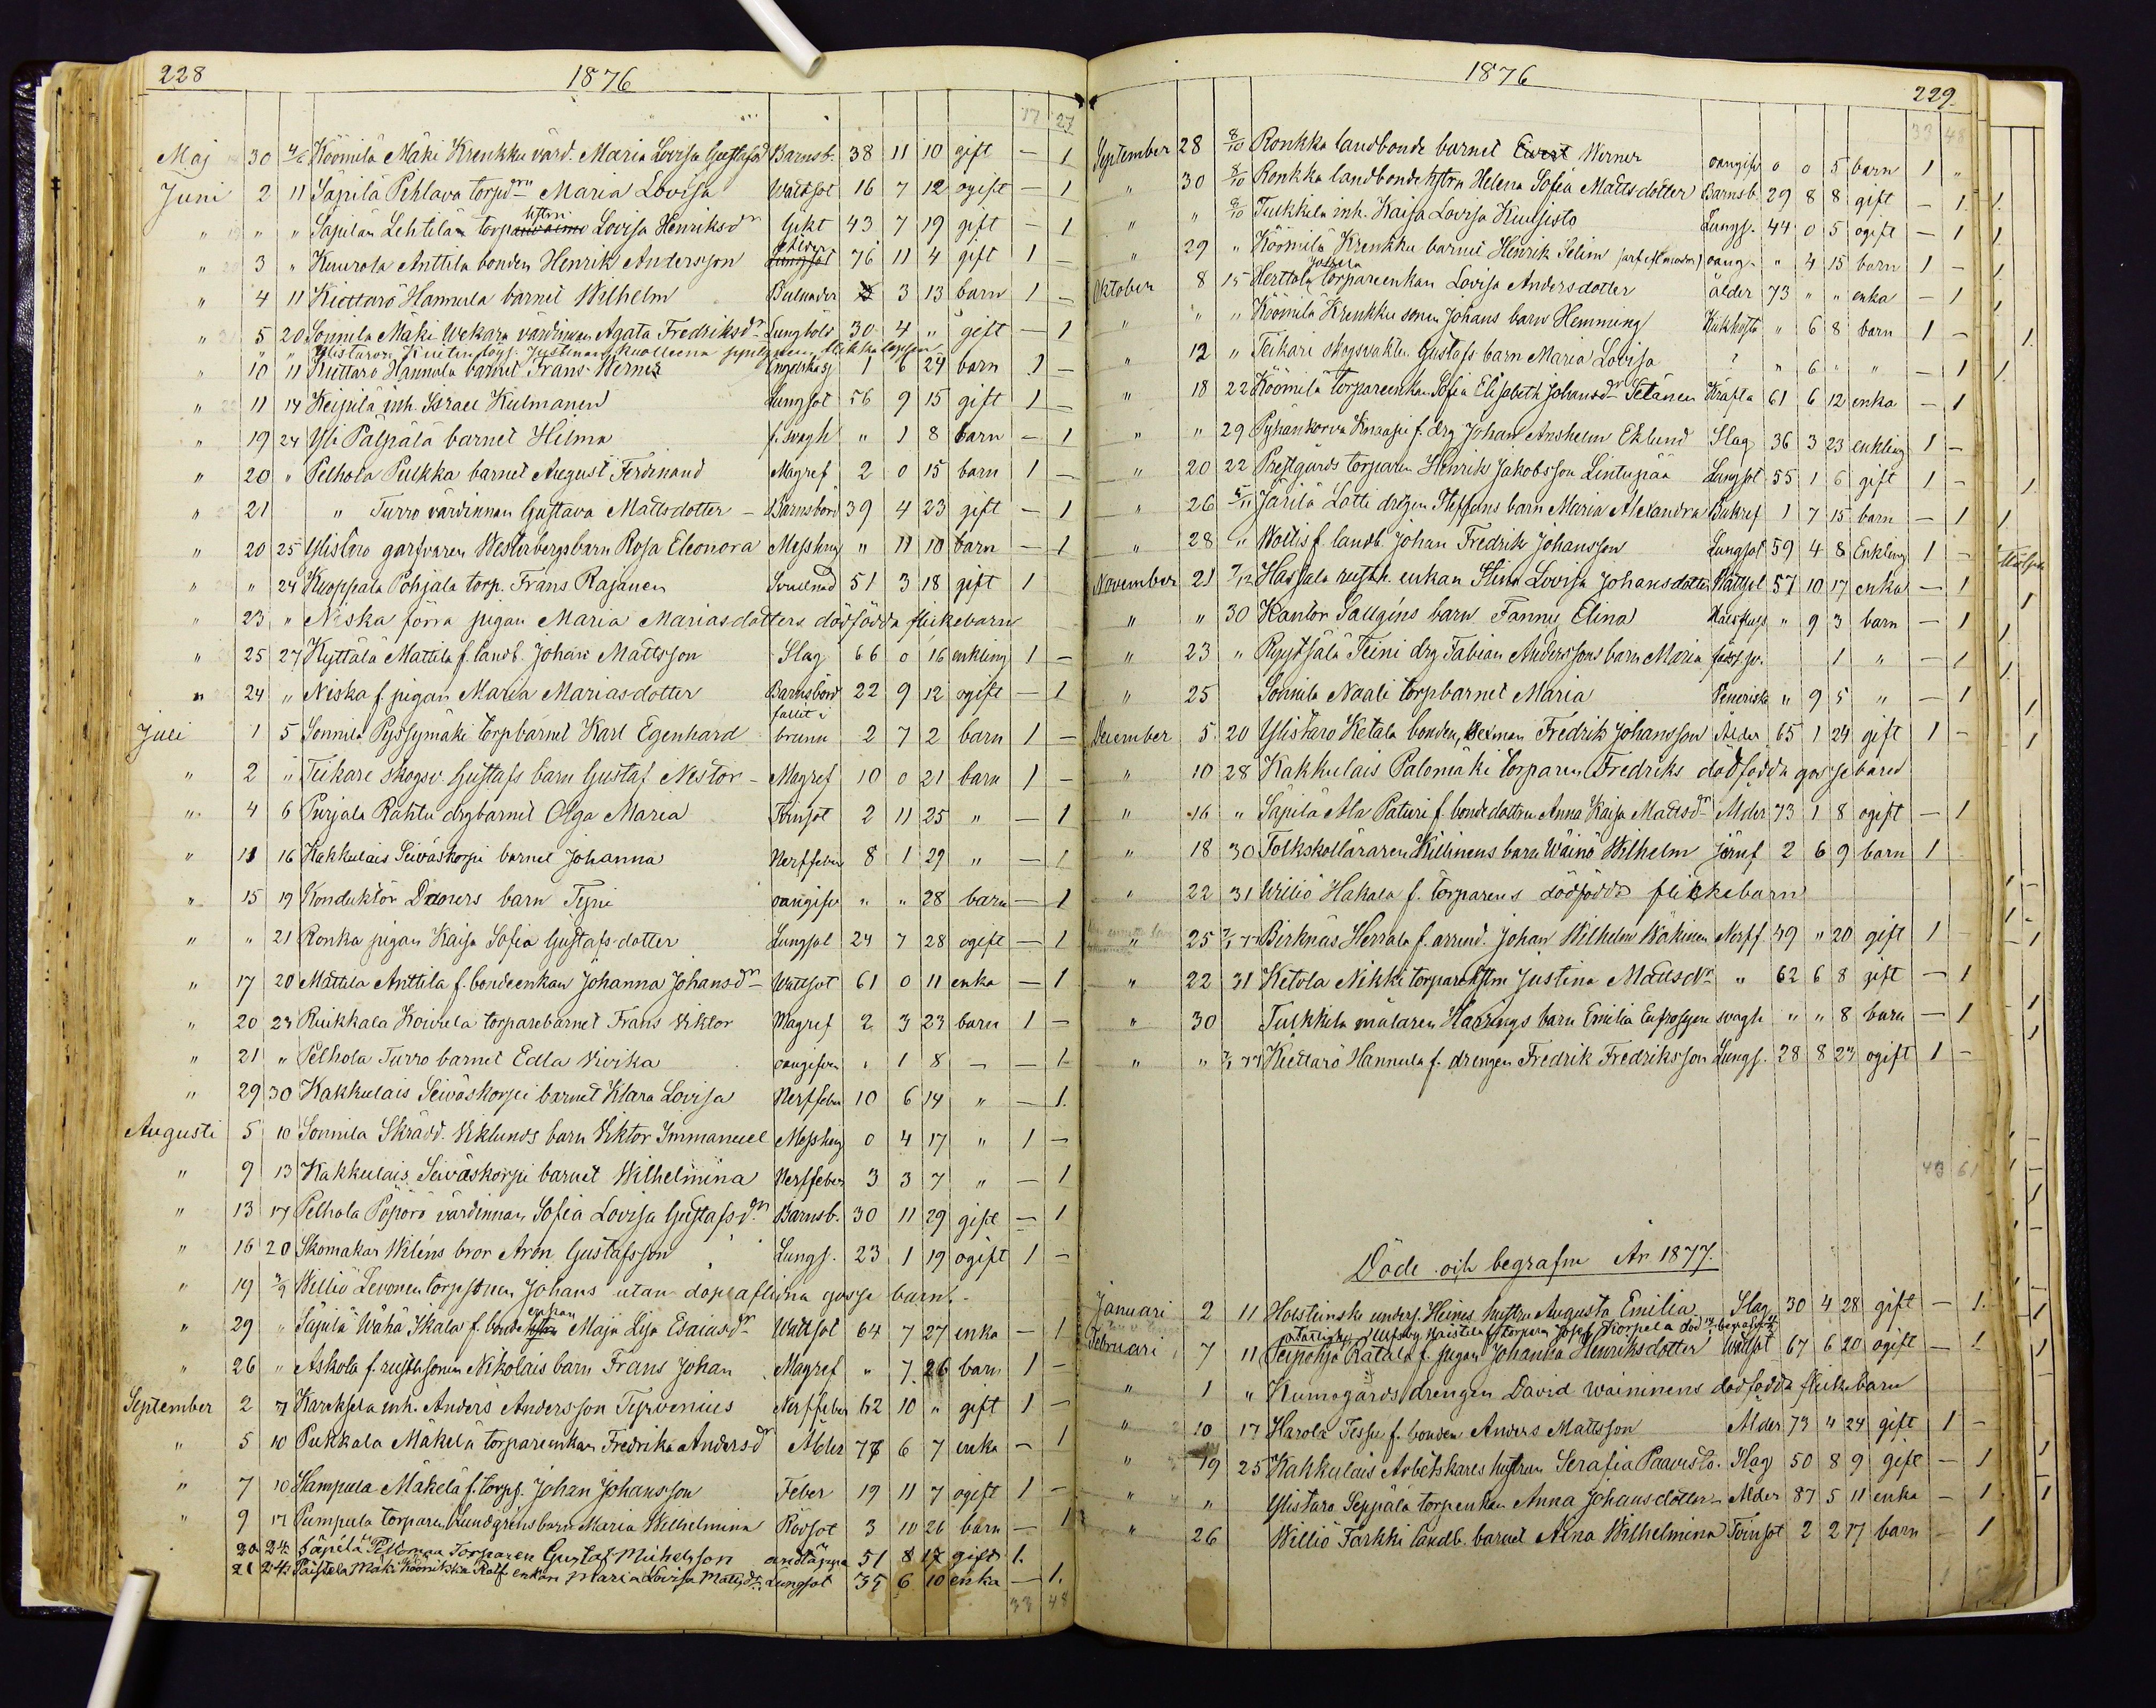 228
1876
17 27
Maj 30 4/6 Köömilä Mäki Krenkku värd. Maria Lovisa Gustafsdr Barnsb. 38 11 10 gift — 1
Juni 2 11 Säpilä Pehlava torpdrn Maria Lovisa Wattsot 16 7 12 ogift — 1
" " " Säpilän Lehtilän torp hstrn Lovisa Henriksdr Gikt 43 7 19 gift — 1
" 3 " Kuurola Anttila bonden Henrik Andersson 76 11 4 gift 1 —
" 4 11 Kiettarö Hannula barnet Wilhelm 3 13 barn 1 —
" 5 20 Sonnila Mäki Wekara värdinnan Agata Fredriksdr Lungböld 30 4 " gift — 1
" " Ylistaron
" 10 11 Kiettarö Hannula barnet Frans Werner Engelska sj 1 6 24 barn 1 —
" 11 14 Keipilä inh. Israel Kulmanen Lungsot 56 9 15 gift 1 —
" 19 24 Yli Pälpälä barnet Hilma f. svagh " 1 8 barn — 1
" 20 " Pelhola Pulkka barnet August Ferdinand Magref 2 0 15 barn 1 —
" 21 " Turro värdinnan Gustava Mattsdotter — Barnsbörd 39 4 23 gift — 1
" 20 25 Ylistaro garfvaren Westerbergs barn Rosa Eleonora Messling " 11 10 barn — 1
" " 24 Kuoppala Pohjala torp. Frans Rajanen 51 3 18 gift 1
" 23 " Niska förra pigan Maria Mariasdotters dödfödda flickebarn
" 25 27 Kyttälä Mattila f. landb. Johan Mattsson Slag 66 0 16 enkling 1 —
" 24 " Niska f pigan Maria Mariasdotter Barnsbörd 22 9 12 ogift — 1
Juli 1 5 Sonnila Pyssymäki torpbarnet Karl Egenhard fallit i brunn 2 7 2 barn 1 —
" 2 " Teikari skogsv. Gustafs barn Gustaf Nestor — Magref 10 0 21 barn 1 —
" 4 6 Purjala Rahtu drgbarnet Olga Maria Tvinsot 2 11 25 " — 1
" 11 16 Kakkulais Seiväskorpi barnet Johanna Nerffeber 8 1 29 " — 1
" 15 19 Konduktör Duners barn Tyni oangifven " " 28 barn — 1
" " 21 Ronka pigan Kaisa Sofia Gustafsdotter Lungsot 24 7 28 ogift — 1
" 17 20 Mattila Anttila f. bondeenkan Johanna Johansdr — Wattsot 61 0 11 enka — 1
" 20 23 Ruikkala Koivula torparebarnet Frans Viktor Magref 2 3 23 barn 1 —
" 21 " Pelhola Turro barnet Edla Vivika oangifven " 1 8 — — 1
" 29 30 Kakkulais Seiväskorpi barnet Klara Lovisa Nerffeber 10 6 14 " — 1.
Augusti 5 10 Sonnila Skrädd. Viklunds barn Viktor Immanuel Messling 0 4 17 " 1 —
" 9 13 Kakkulais Seiväskorpi barnet Wilhelmina Nerffeber 3 3 7 " — 1
" 13 17 Pelhola Pöpörö värdinnan Sofia Lovisa Gustafsdr Barnsb. 30 11 29 gift — 1
" 16 20 Skomakar Wiléns bror Aron Gustafsson Lungs. 23 1 19 ogift 1 —
" 19 3/9 Williö Levonen torpsonen Johans utan dop aflidna gosse barn. —
" 29 " Säpilä Wähä Ikala f. bonde enkan Maja Lisa Esaiasdr Wattsot 64 7 27 enka — 1
" 26 " Askola f. rusthsonen Nikolais barn Frans Johan Magref " 7 26 barn 1 —
September 2 7 Karhsela inh. Anders Andersson Tyrvenius Nerffeber 62 10 " gift 1 —
" 5 10 Pukkala Mäkelä torpareenkan Fredrika Andersdr Ålder 77 6 7 enka — 1
" 7 10 Hampula Mäkelä f. torps. Johan Johansson Feber 19 11 7 ogift 1 —
" 9 17 Pumpula torparen Lundgrens barn Maria Wilhelmina Rödsot 3 10 26 barn — 1
20 24 Säpilä Peltomaa Torparen Gustaf Michelsson andtäppa 51 8 17 gift 1.
21 24 Päistela Mäki enkan Maria Lovisa Mattsdr. Lungsot 35 6 10 enka — 1.
33 48
1876
229.
33 48
September 28 8/10 Ronkka landbonde barnet Ewert Werner oangifv 0 0 5 barn 1 "
" 30 8/10 Ronkka landbondehstrn Helena Sofia Mattsdotter Barnsb. 29 8 8 gift — 1.
" " 8/10 Tulkkila inh. Kaisa Lovisa Kuusisto Lungs. 44 0 5 ogift — 1
" 29 " Köömilä Krenkku barnet Henrik Selim oang. " 4 15 barn 1 —
Oktober 8 15 Herttola Jussila torpareenkan Lovisa Andersdotter ålder 73 " " enka — 1
" " " Köömilä Krenkku sonen Johans barn Hemming Kikhosta " 6 8 barn 1 —
" 12 " Teikari skogsvakten Gustafs barn Maria Lovisa ? " 6 " " — 1
" 18 22 Köömilä torpareenkan Sofia Elisabeth Johansdr Setänen Kräfta 61 6 12 enka — 1
" " 29 Pyhänkorva Knaapi f. drg Johan Anshelm Eklund Slag 36 3 23 enkling 1 —
" 20 22 Prestgårds torparen Henrik Jakobsson Lintupää Lungsot 55 1 6 gift 1 —
" 26 5/11 Järilä Lätti drägen Steffens barn Maria Alexandra Bukref 1 7 15 barn — 1
" 28 " Wollis f. landb. Johan Fredrik Johansson Lungsot 59 4 8 Enkling 1 —
November 21 3/12 Hassala rusth. enkan Stina Lovisa Johansdotter Wattsot 57 10 17 enka — 1
" " 30 Kantor Sallgins barn Fanny Elina Halsfluss " 9 3 barn — 1
" 23 " Ryytsälä Teini drg Fabian Anderssons barn Maria först sv. 1 " — 1
" 25 Sonnila Naali torpbarnet Maria Veneriska " 9 5 " — 1
December 5 20 Ylistaro Ketala bonden, sexman Fredrik Johansson Ålder 65 1 24 gift 1 —
" 10 28 Kakkulais Palomäki torparen Fredriks dödfödda gossebarn
" 16 " Säpilä Ala Paturi f. bondedottren Anna Kaisa Mattsdr Ålder 73 1 8 ogift — 1
" 18 30 Folkskolläraren Killinens barn Wäinö Wilhelm 2 6 9 barn 1
" 22 31 Williö Hakala f. torparens dödfödda flickebarn
" 25 7/1 77 Birknäs Herrala f. arrend. Johan Wilhelm Wäkinen Nerff 49 " 20 gift 1 —
" 22 31 Ketola Nikki torparehstrn Justina Mattsdr " 62 6 8 gift — 1
" 30 Tulkkila målaren Haerings barn Emilia Eufrosyne svagh " " 8 barn — 1
" " 7/1 77 Kiettarö Hannula f. drengen Fredrik Fredriksson Lungs. 28 8 23 ogift 1 —
43 61
Döde och begrafne År 1877.
Januari 2 11 Holsteinske unders. Heines hustru Augusta Emilia Slag 30 4 28 gift — 1.
torparen Josef Korpela död begrafd
Februari 7 11 Peipohja Ratala f. pigan Johanna Henriksdotter Wattsot 67 6 20 ogift — 1
" 1 " Kumogårds drengen David Waininens dödfödda flickebarn
" 10 17 Harola Tessu f. bonden Anders Mattsson Ålder 73 4 24 gift 1 —
" 19 25 Kakkulais Arbetskarls hustrun Serafia Paavisto. Slag 50 8 9 gift — 1
" " Ylistaro Seppälä torpenkan Anna Johansdotter — Ålder 87 5 11 enka — 1
" 26 Williö Farkki landb. barnet Alma Wilhelmina Tvinsot 2 2 17 barn — 1